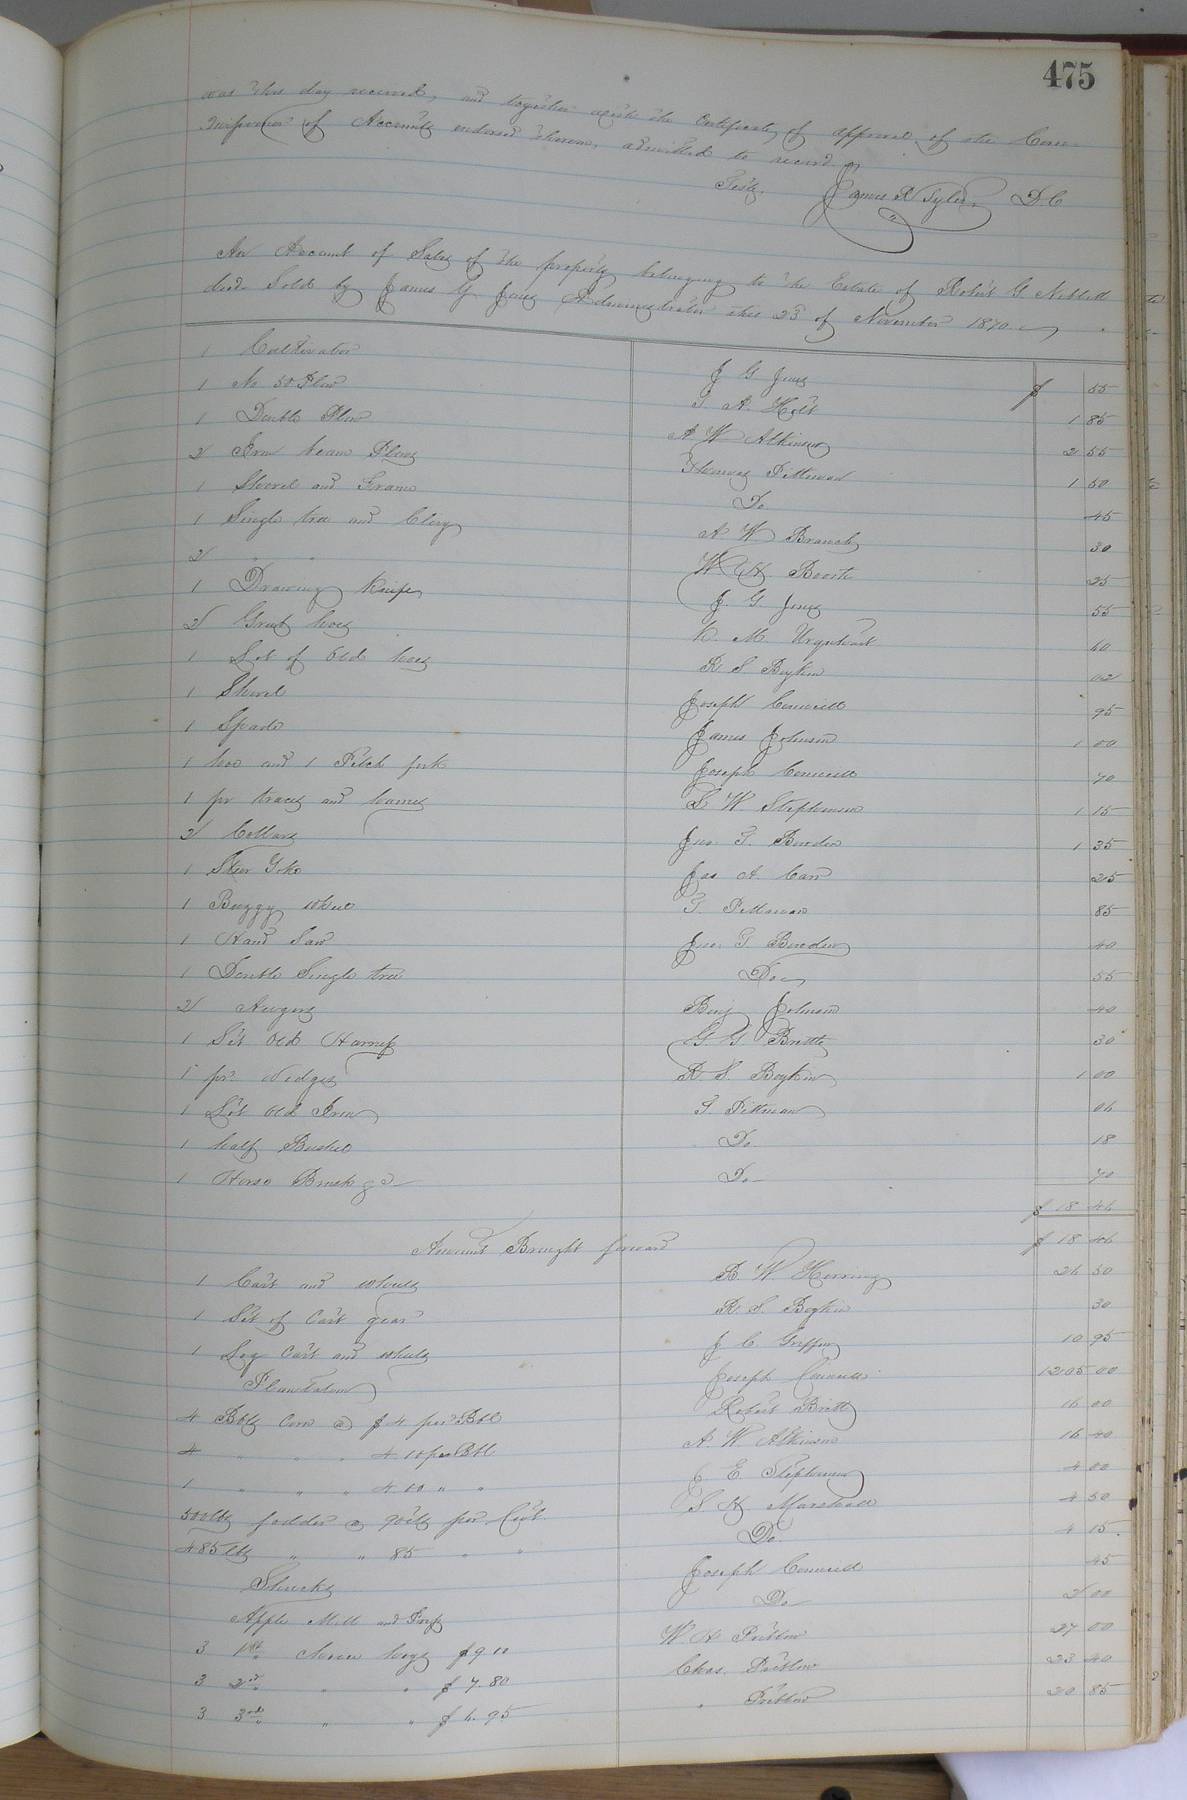 475
was this day received, and together with the Certificate of approval of the Com
of Accounts endorsed thereon, admitted to record
Teste, James R Tyler, D.C
An Account of Sales of the property belonging to the Estate of Robert G
decd. Sold by James G Jones Administrator this 23 of November 1870.
1 Cultivator J G Jones $ 55
1 No 50 Plow T. A. Holt 1 85
1 Double Plow A W Atkinson 2 55
2 Iron beam Plows Thomas Pittman 1 50
1 Shovel and Frame Do 45
1 Single tree and Clevy A W Branch 30
2 " " W H Booth 25
1 Drawing knife J. G. Jones 55
2 Grub hoes M Urquhart 60
1 Lot of Old hoes R S Boykin 02
1 Shovel Joseph 95
1 Spade James Johnson 1 00
1 hoe and 1 Pitch fork Joseph 70
1 pr traces and hames W Stephenson 1 15
2 Collars Jno. T. 1 35
1 Steer Yoke Jas A. Carr 25
1 Buggy wheel T. Pittman 85
1 Hand Saw Jno. T. 40
1 Double Single tree Do 55
2 Augers Benj Johnson 40
1 Set Old Harness G. G. Britt 30
1 pr. Wedges R. S. Boykin 1 00
1 Lot Old Iron T Pittman 06
1 half Bushel Do 18
1 Horse Brush &c Do 70
$ 18 46
Amount Brought forward $ 18 46
1 Cart and wheels B. W. Herring 26 50
1 Set of Cart gear R. S. Boykin 30
1 Log Cart and wheels J C. Griffin 10 95
Plantation Joseph 1205 00
4 Bbls Corn @ $4 per Bbl Robert Britt 16 00
4 " " " 4 10 per Bbl A. W. Atkinson 16 40
1 " " " 4 00 " " E. Stephenson 4 00
500 lbs fodder @ 90cts per Cwt. S H Marshall 4 50
485 lbs " " 85 " " Do 4 15
Shucks Joseph 45
Apple Mill and Press Do 2 00
3 1st Choice hogs $9 00 W H Pretlow 27 00
3 2nd " " $ 7.80 Chas. Pretlow 23 40
3 3rd " " $ 6.95 " Pretlow 20 85